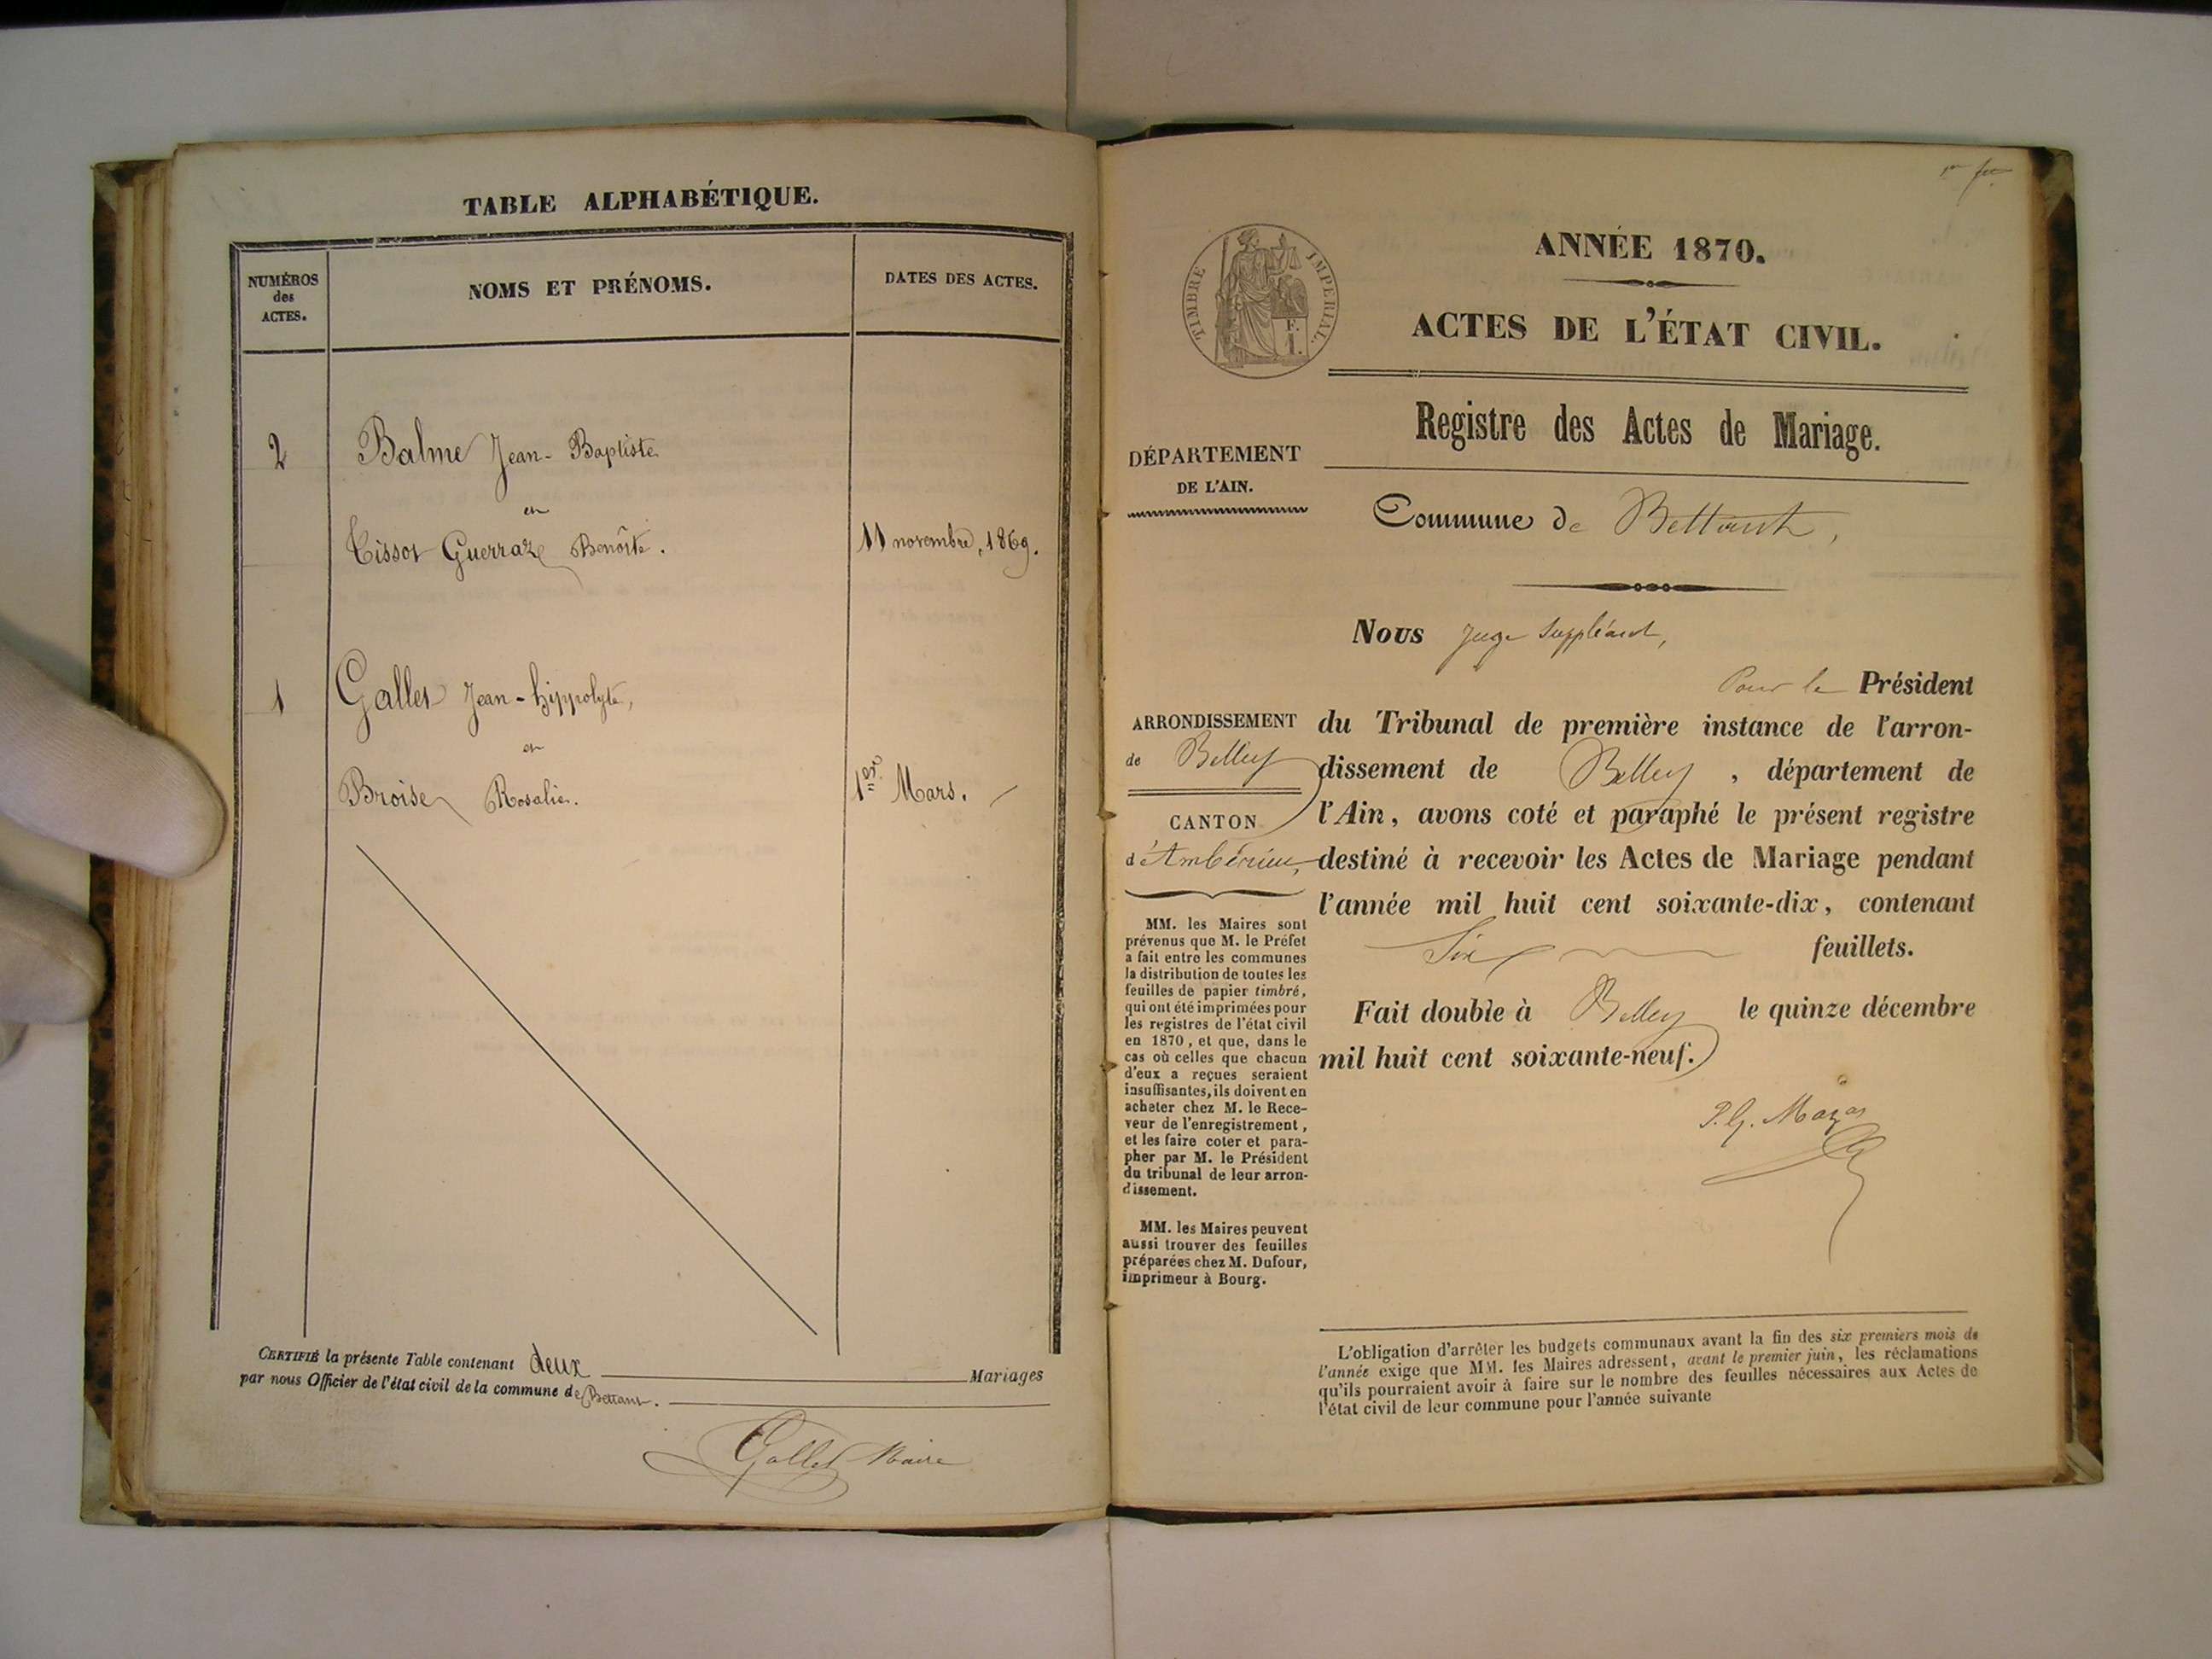 TABLE ALPHABÉTIQUE.
NUMÉROS
des
ACTES.
NOMS ET PRÉNOMS.
DATES DES ACTES.
2 Balme Jean-Baptiste
et
Tissot Guerraz Benoîte. 11 novembre, 1869.
1 Gallet Jean-hippolyte,
et
Broise Rosalie. 1er Mars.
CERTIFIÉ la présente Table contenant deux Mariages
par nous Officier de l'état civil de la commune de Bettant.
Gallet Maire
1er fet
TIMBRE IMPÉRIAL.
ANNÉE 1870.
ACTES DE L'ÉTAT CIVIL.
Registre des Actes de Mariage.
DÉPARTEMENT
DE L'AIN.
Commune de Bettant,
Nous Juge Suppléant,
Pour le Président
ARRONDISSEMENT
de Belley
CANTON
d'Ambérieu,
du Tribunal de première instance de l'arron-
dissement de Belley, département de
l'Ain, avons coté et paraphé le présent registre
destiné à recevoir les Actes de Mariage pendant
l'année mil huit cent soixante-dix, contenant
Six feuillets.
Fait double à Belley le quinze décembre
mil huit cent soixante-neuf.
P. G. Mazas
MM. les Maires sont
prévenus que M. le Préfet
a fait entre les communes
la distribution de toutes les
feuilles de papier timbré,
qui ont été imprimées pour
les registres de l'état civil
en 1870, et que, dans le
cas où celles que chacun
d'eux a reçues seraient
insuffisantes, ils doivent en
acheter chez M. le Rece-
veur de l'enregistrement,
et les faire coter et para-
pher par M. le Président
du tribunal de leur arron-
dissement.
MM. les Maires peuvent
aussi trouver des feuilles
préparées chez M. Dufour,
imprimeur à Bourg.
L'obligation d'arrêter les budgets communaux avant la fin des six premiers mois de
l'année exige que MM. les Maires adressent, avant le premier juin, les réclamations
qu'ils pourraient avoir à faire sur le nombre des feuilles nécessaires aux Actes de
l'état civil de leur commune pour l'année suivante